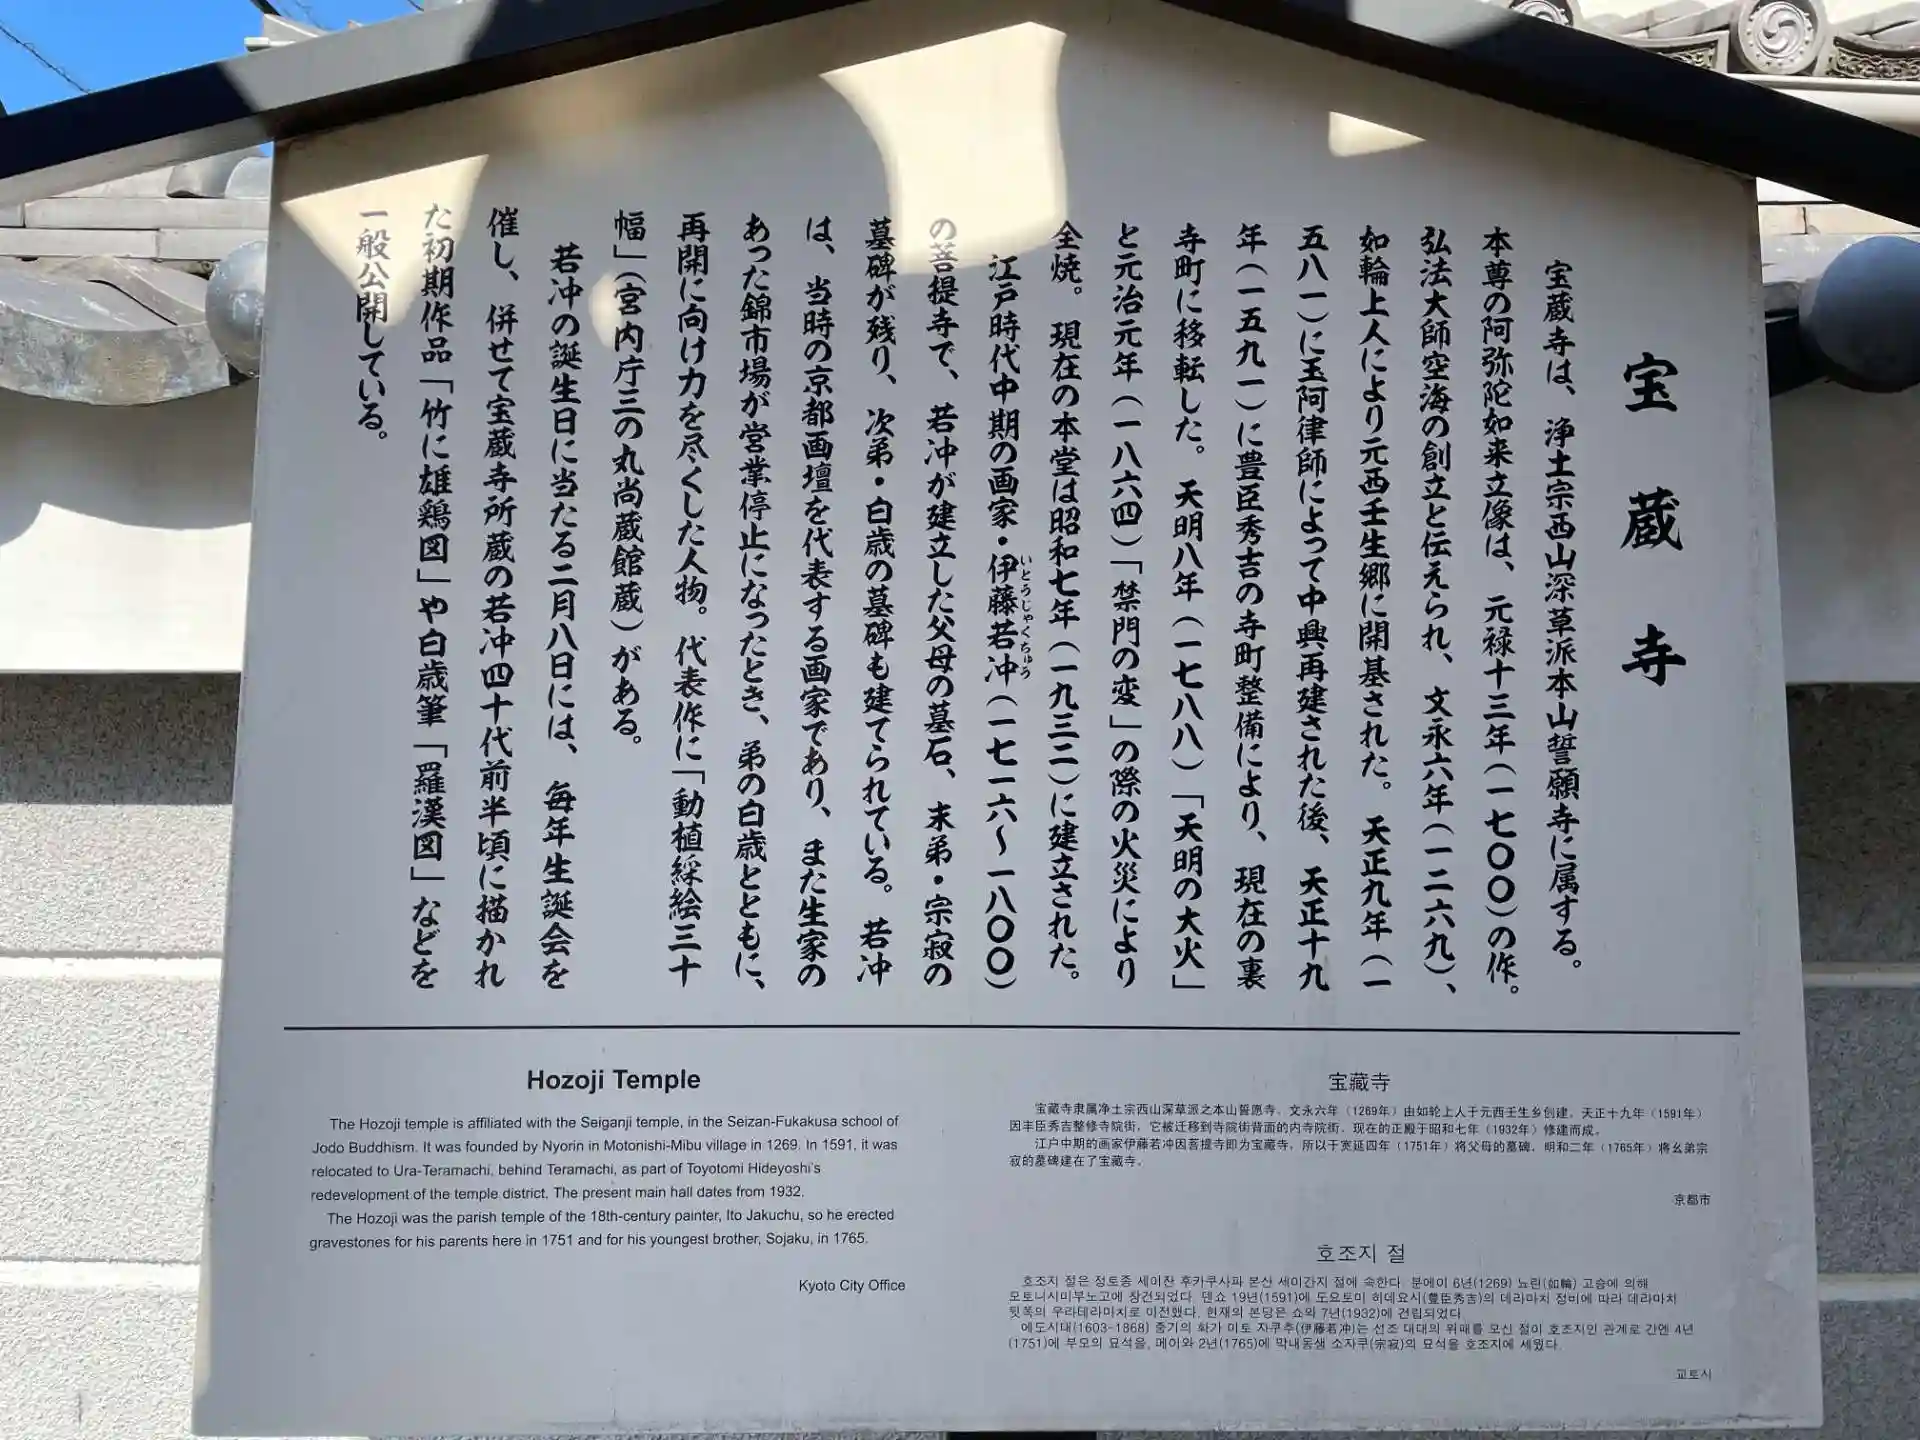 宝蔵寺
宝蔵寺は、浄土宗西山深草派本山誓願寺に属する。
本尊の阿弥陀如来立像は、元禄十三年(一七〇〇)の作。
弘法大師空海の創立と伝えられ、文永六年(一二六九)、
如輪上人により元西壬生郷に開基された。天正九年(一
五八一)に玉阿律師によって中興再建された後、天正十九
年(一五九一)に豊臣秀吉の寺町整備により、現在の裏
寺町に移転した。天明八年(一七八八)「天明の大火」
と元治元年(一八六四)「禁門の変」の際の火災により
全焼。現在の本堂は昭和七年(一九三二)に建立された。
江戸時代中期の画家・伊藤若冲(一七一六〜一八〇〇)
いとうじゃくちゅう
の菩提寺で、若冲が建立した父母の墓石、末弟・宗寂の
墓碑が残り、次弟・白歳の墓碑も建てられている。若冲
は、当時の京都画壇を代表する画家であり、また生家の
あった錦市場が営業停止になったとき、弟の白歳とともに、
再開に向け力を尽くした人物。代表作に「動植綵絵三十
幅」(宮内庁三の丸尚蔵館蔵)がある。
若冲の誕生日に当たる二月八日には、毎年生誕会を
催し、併せて宝蔵寺所蔵の若冲四十代前半頃に描かれ
た初期作品「竹に雄鶏図」や白歳筆「羅漢図」などを
一般公開している。
Hozoji Temple
The Hozoji temple is affiliated with the Seiganji temple, in the Seizan-Fukakusa school of
Jodo Buddhism. It was founded by Nyorin in Motonishi-Mibu village in 1269. In 1591, it was
relocated to Ura-Teramachi, behind Teramachi, as part of Toyotomi Hideyoshi's
redevelopment of the temple district. The present main hall dates from 1932.
The Hozoji was the parish temple of the 18th-century painter, Ito Jakuchu, so he erected
gravestones for his parents here in 1751 and for his youngest brother, Sojaku, in 1765.
Kyoto City Office
宝藏寺
宝藏寺隶属净土宗西山深草派之本山誓愿寺，文永六年（1269年）由如轮上人于元西壬生乡创建，天正十九年（1591年）
因丰臣秀吉整修寺院街，它被迁移到寺院街背面的内寺院街，现在的正殿于昭和七年（1932年）修建而成。
江户中期的画家伊藤若冲因菩提寺即为宝藏寺，所以于宽延四年（1751年）将父母的墓碑，明和二年（1765年）将幺弟宗
寂的墓碑建在了宝藏寺。
京都市
호조지 절
호조지 절은 정토종 세이잔 후카쿠사파 본산 세이간지 절에 속한다. 분에이 6년(1269) 뇨린(如輪) 고승에 의해
모토니시미부노고에 창건되었다. 덴쇼 19년(1591)에 도요토미 히데요시(豊臣秀吉)의 데라마치 정비에 따라 데라마치
뒷쪽의 우라테라마치로 이전했다. 현재의 본당은 쇼와 7년(1932)에 건립되었다.
에도시대(1603-1868) 중기의 화가 이토 자쿠추(伊藤若冲)는 선조 대대의 위패를 모신 절이 호조지인 관계로 간엔 4년
(1751)에 부모의 묘석을, 메이와 2년(1765)에 막내동생 소자쿠(宗寂)의 묘석을 호조지에 세웠다.
교토시